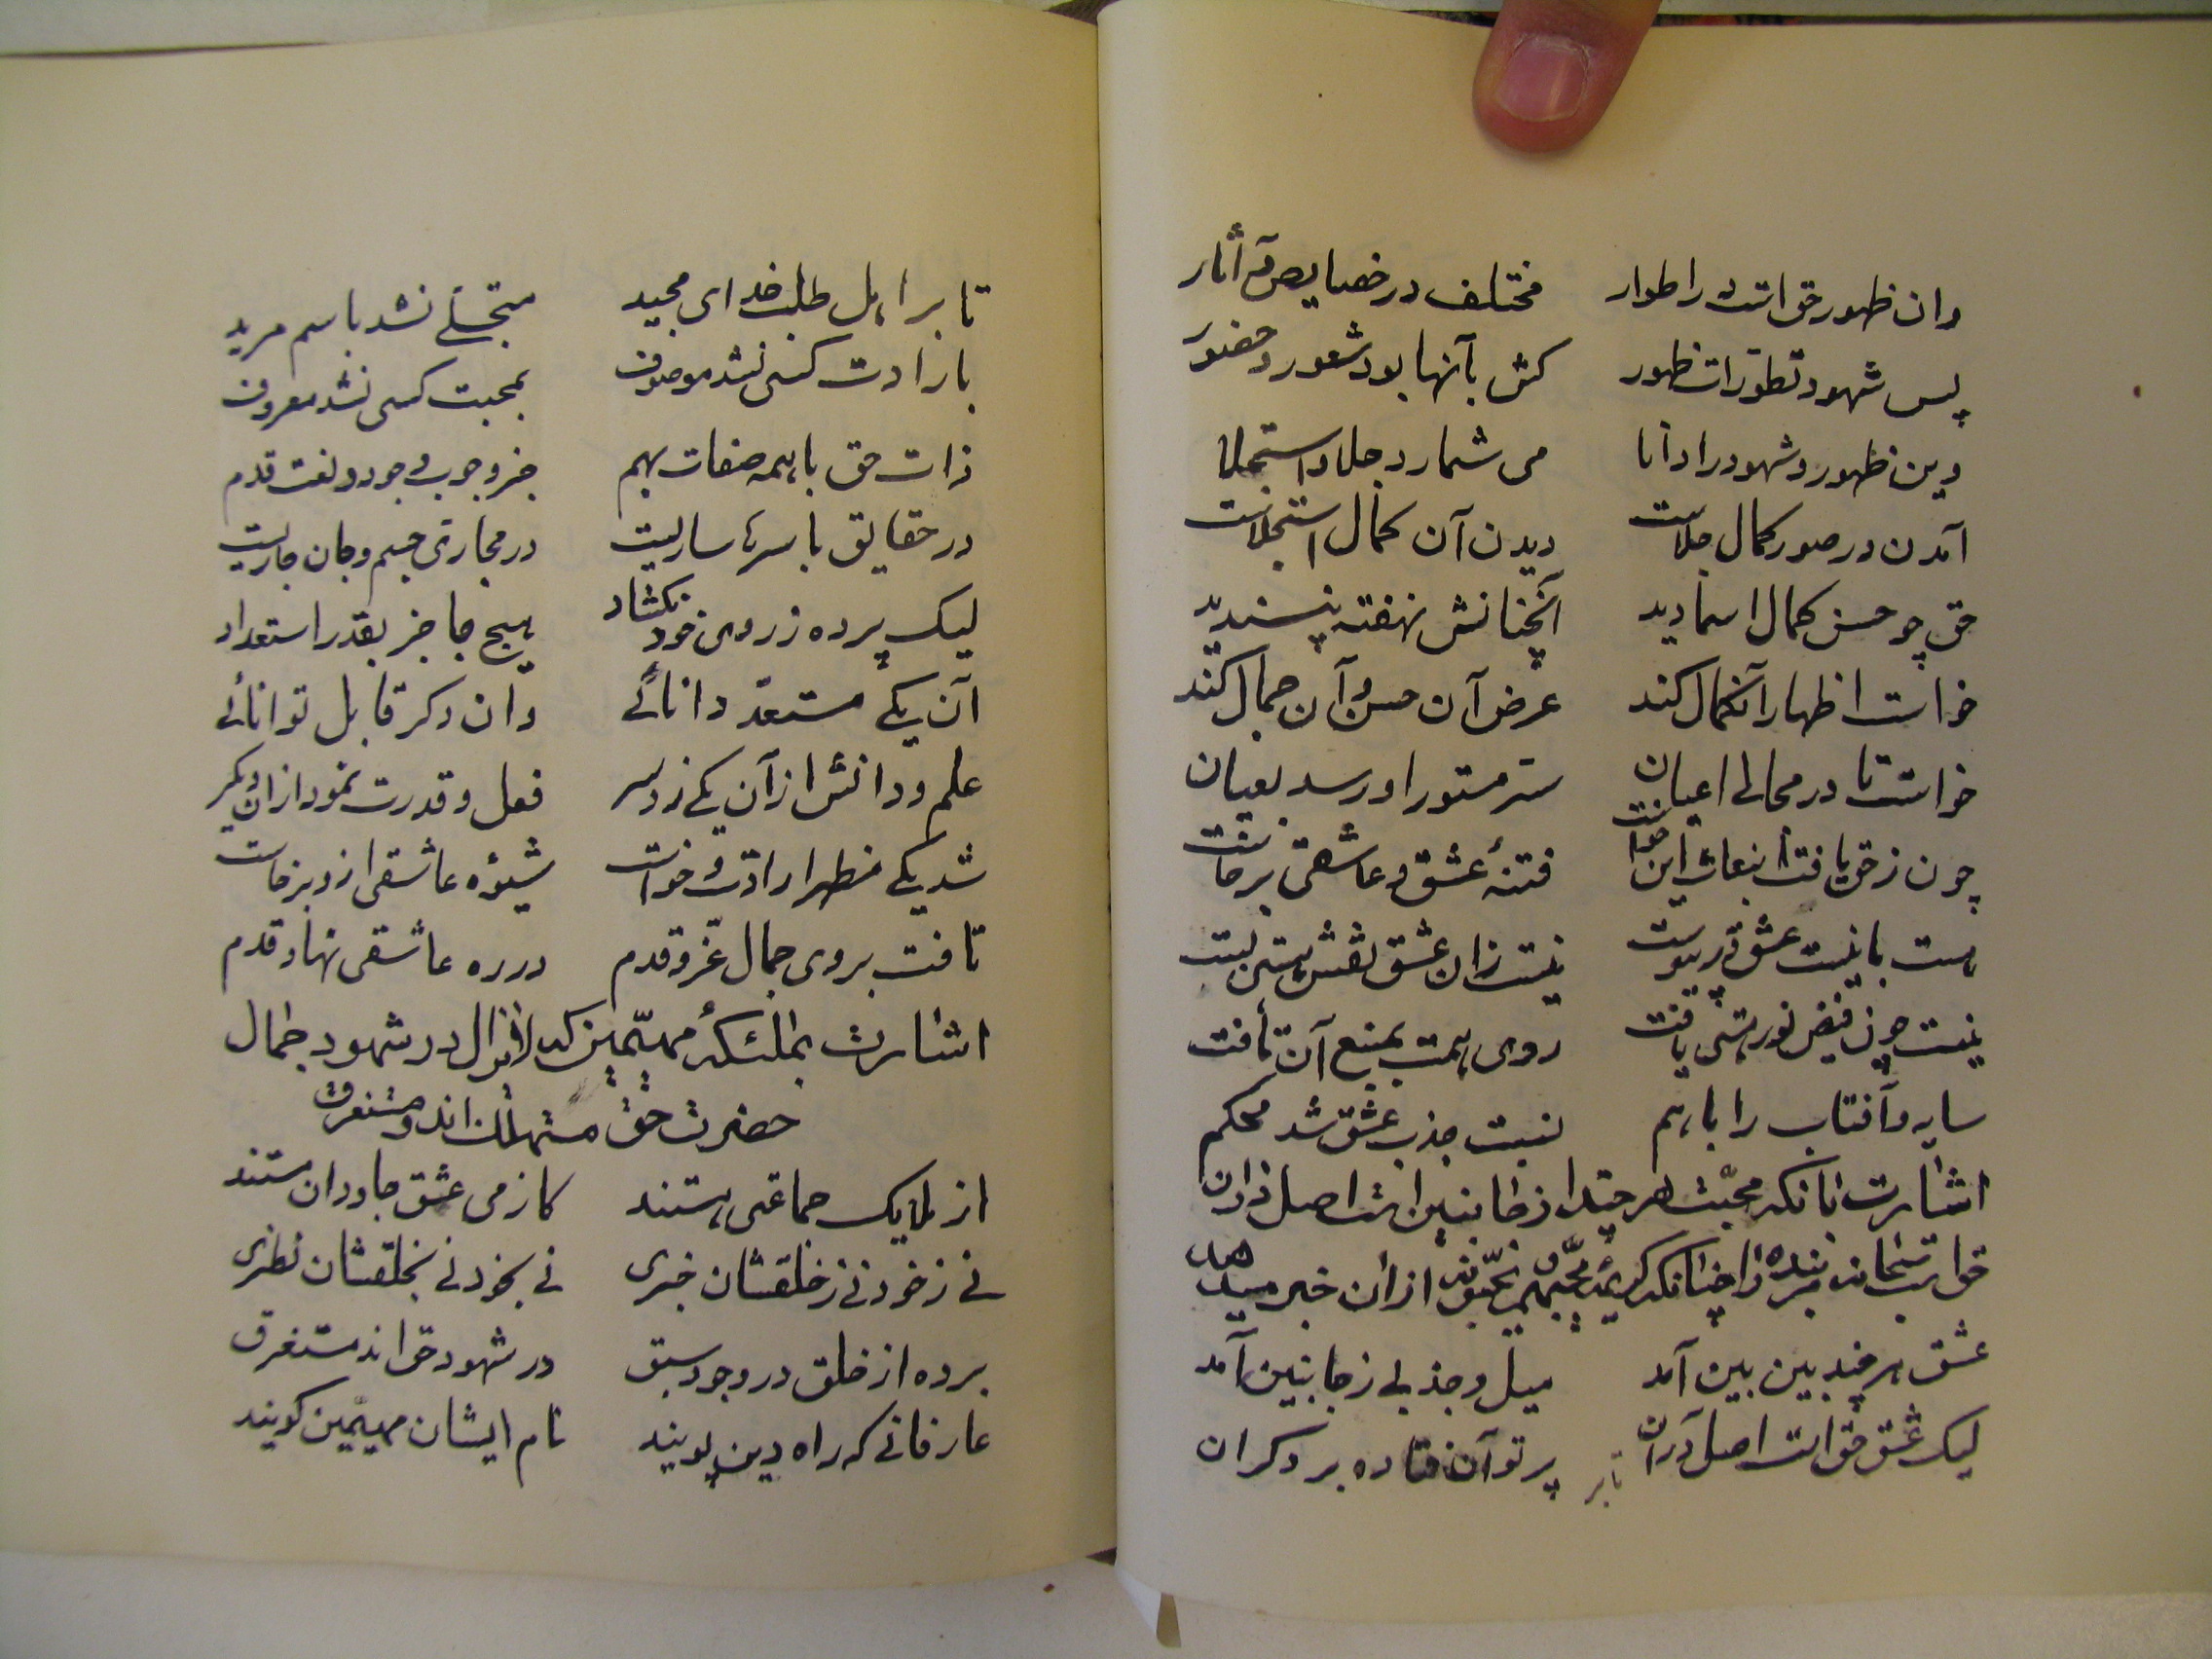 وان ظهور حق است در اطوار مختلف در خصایص و آثار
پس شهود تطورات ظهور کش بآنها بود شعور و حضور
وین ظهور و شهود را دانا می شمارد جلا و استجلا
آمدن در صور کمال جلاست دیدن آن کمال استجلاست
حق چو حسن کمال اسما دید آنچنانش نهفته نپسندید
خواست اظهار آن کمال کند عرض آن حسن و آن جمال کند
خواست تا در مجالی اعیان ستر مستور او رسد بعیان
چون ز حق یافت انبعاث این خواست فتنهٔ عشق و عاشقی برخاست
هست با نیست عشق در پیوست نیست زان عشق نقش هستی بست
نیست چون فیض نور هستی یافت روی همت بمنبع آن تافت
سایه و آفتاب را با هم نسبت جذب عشق شد محکم
اشارت بانکه محبت هر چند از جانبین است اصل در آن
خواست حق است مر بنده را چنانکه کریمهٔ یحبهم و یحبونه از آن خبر میدهد
عشق هر چند بین بین آمد میل و جذبی ز جانبین آمد
لیک عشق حق است اصل در آن پرتو آن فتاده بر دگران
تا بر
تا بر اهل طلب خدای مجید متجلی نشد باسم مرید
بارادت کسی نشد موصوف بمحبت کسی نشد معروف
ذات حق با همه صفات بهم جز وجوب وجود و نعت قدم
در حقایق باسرها ساریست در مجاری جسم و جان جاریست
لیک پرده ز روی خود نگشاد هیچ جا جز بقدر استعداد
آن یکی مستعد دانائی وان دگر قابل توانائی
علم و دانش از آن یکی زد سر فعل و قدرت نمود از ان دیگر
شد یکی مظهر ارادت و خواست شیوهٔ عاشقی ازو برخاست
تافت بروی جمال عز و قدم در ره عاشقی نهاد قدم
اشارت بملئکهٔ مهیمین که لایزال در شهود جمال
حضرت حق مستهلک اند و مستغرق
از ملایک جماعتی هستند کز می عشق جاودان مستند
نی ز خود نی ز خلقشان خبری نی بخود نی بخلقشان نظری
برده از خلق در وجود سبق در شهود حق اند مستغرق
عارفانی که راه دین پویند نام ایشان مهیمین گویند